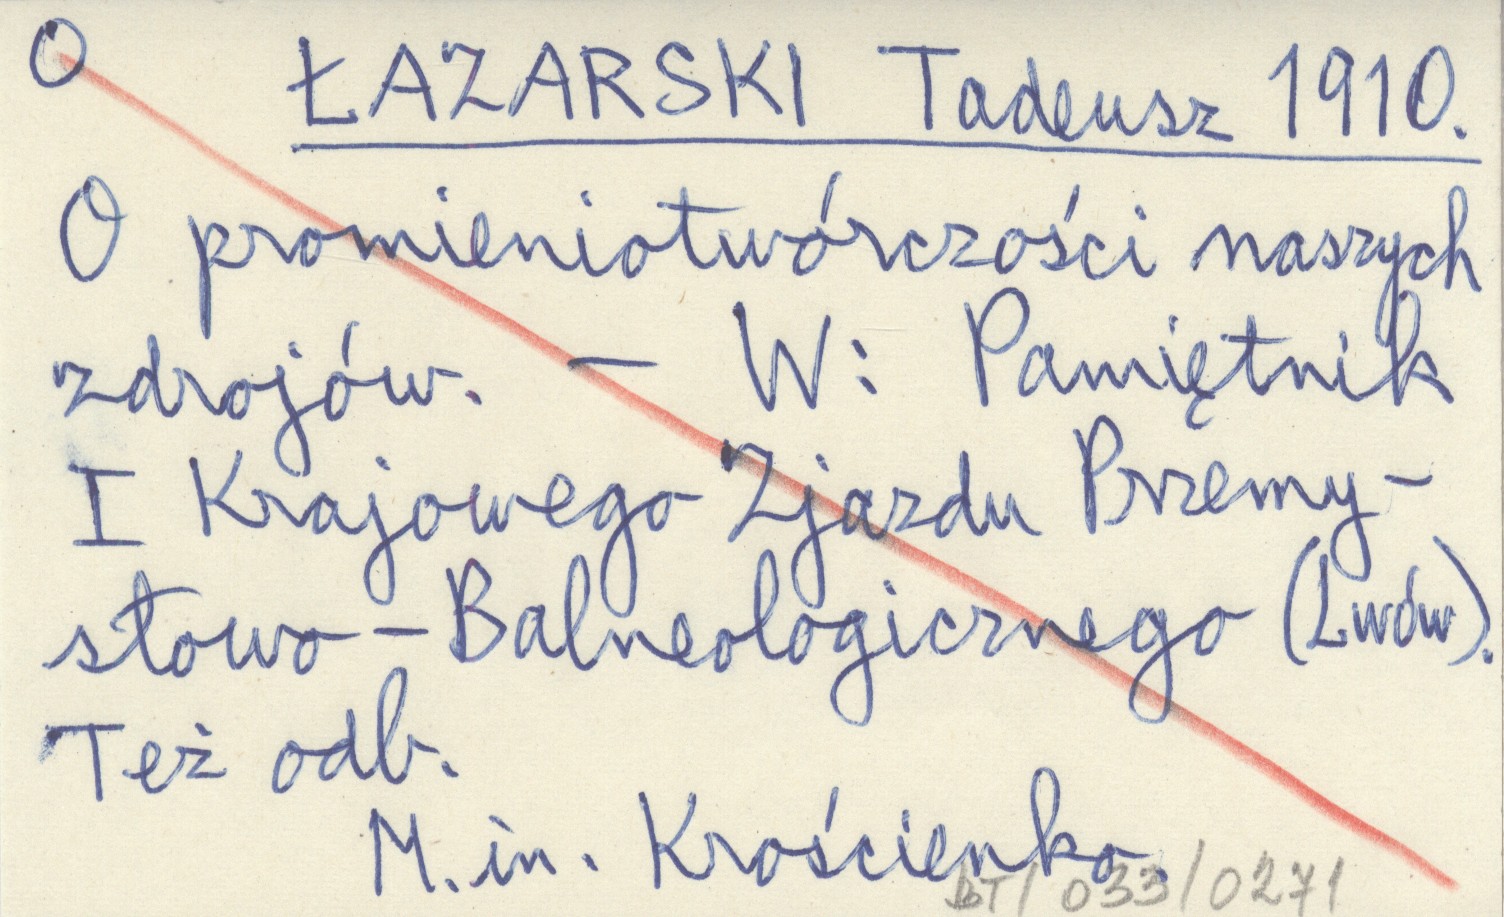 O ŁAZARSKI Tadeusz 1910.
O promieniotwórczości naszych
zdrojów. – W: Pamiętnik
I Krajowego Zjazdu Przemy-
słowo-Balneologicznego (Lwów).
Też odb.
M.in. Krościenko.
BT/033/0271